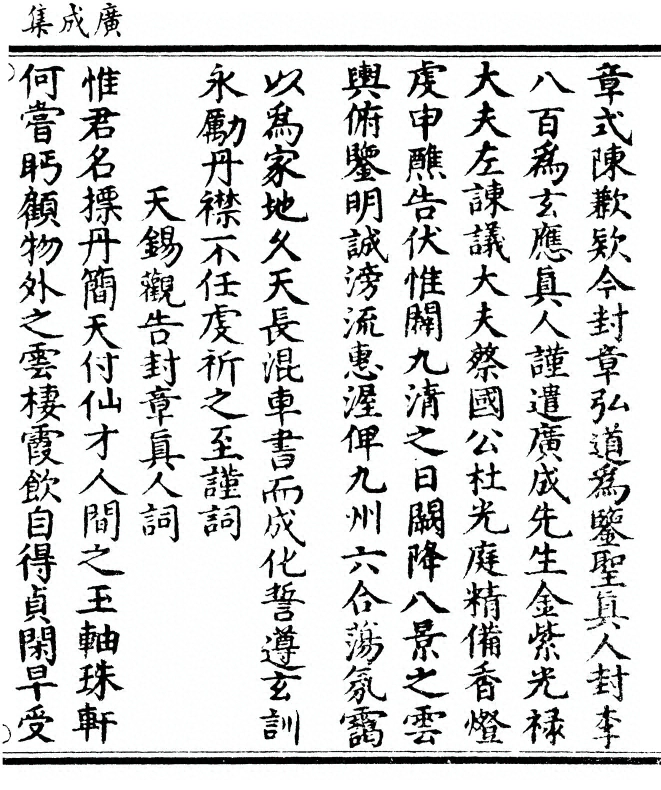 廣成集
章式陳歉欵今封章弘道爲鑒聖真人封李
八百爲玄應真人謹遣廣成先生金紫光禄
大夫左諌議大夫蔡國公杜光庭精備香燈
虔申醮告伏惟闢九清之日闕降八景之雲
輿俯鑒明誠滂流惠渥俾九州六合蕩氛靄
以爲家地久天長混車書而成化誓遵玄訓
永勵丹襟不任虔祈之至謹詞
天錫觀告封章真人詞
惟君名摽丹簡天付仙才人間之玉軸珠軒
何嘗眄顧物外之雲棲霞飲自得貞閑早受